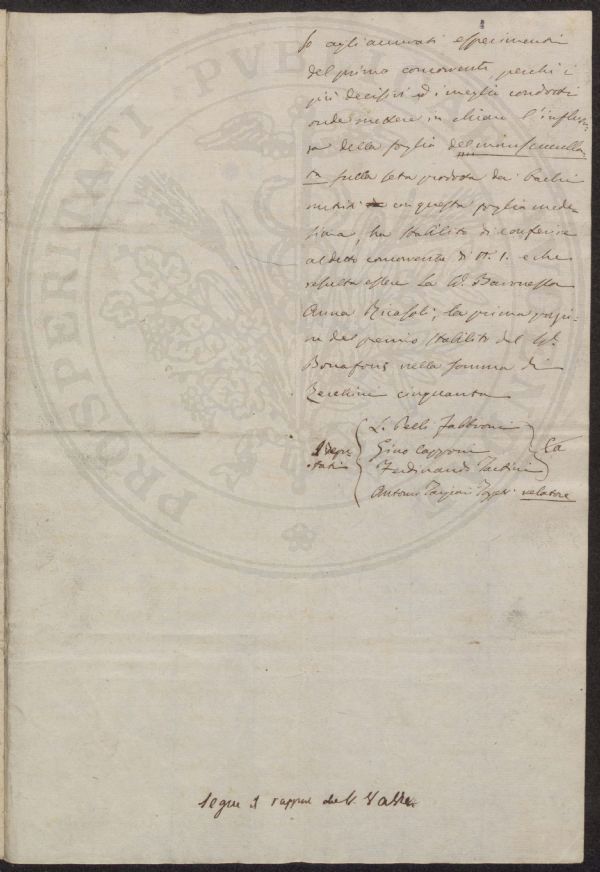 so agli accurati esperimenti
del primo concorrente, perchè i
più decisivi ed i meglio condotti
onde mettere in chiaro l'influen-
za della foglia del
sulla seta prodotta dai bachi
nutriti con questa foglia mede-
sima, ha stabilito di conferire
al detto concorrente di N. 1. e che
resulta essere la Sig. Baronessa
Anna Ricasoli, la prima porzio-
ne del premio stabilito dal Sig.
Bonafous nella somma di
Zecchini cinquanta
I Depu-
tati
L. Pelli Fabbroni
Gino Capponi
Ferdinando Tartini
Antonio Targioni Tozzetti relatore
Segue il rapporto del
PROSPERITATI PUBLICAE